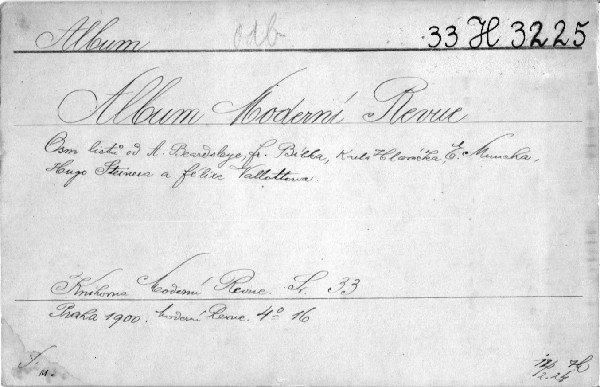 Album odb 33 H 3225
Album Moderní Revue
Osm listů od A. Beardsleye, Fr. Bílka, Karla Hlaváčka, E. Muncha,
Hugo Steinera a Félixe Vallottona.
Knihovna Moderní Revue. Sv. 33
Praha 1900. Moderní Revue. 4° 16